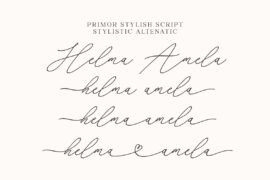 PRIMOR STYLISH SCRIPT
STYLISTIC ALTENATIC
Helma Amela
helma amela
helma amela
helma amela